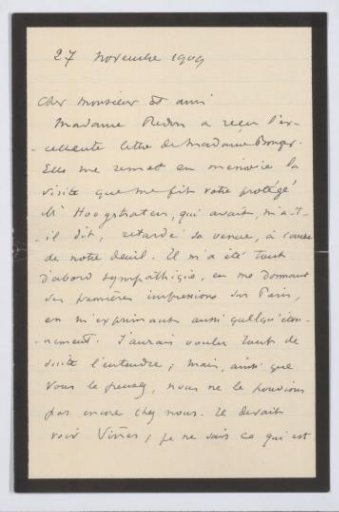 27 novembre 1909
Cher Monsieur et ami
Madame Redon a reçu l'ex-
cellente lettre de Madame Bonger.
Elle me remet en mémoire la
visite que me fit votre protégé
Mr Hoogstraten, qui avait, m'a-t-
-il dit, retardé sa venue, à cause
de notre deuil. Il m'a été tout
d'abord sympathique, en me donnant
ses premières impressions sur Paris,
en m'exprimant aussi quelqu'éton-
-nement. J'aurais voulu tout de
suite l'entendre; mais, ainsi que
vous le pensez, nous ne le pouvions
pas encore chez nous. Il devait
voir Viñes; je ne sais ce qui est